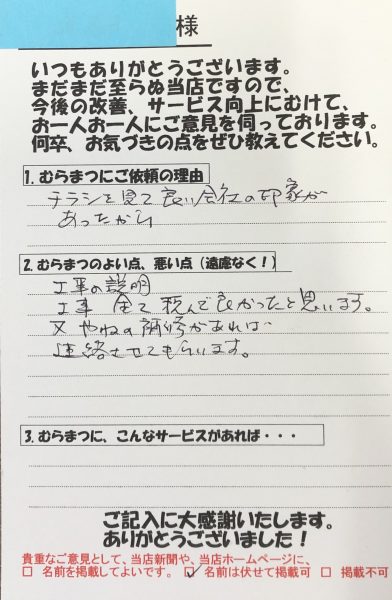 様
いつもありがとうございます。
まだまだ至らぬ当店ですので、
今後の改善、サービス向上にむけて、
お一人お一人にご意見を伺っております。
何卒、お気づきの点をぜひ教えてください。
1. むらまつにご依頼の理由
チラシを見て良い会社の印象が
あったから
2. むらまつのよい点、悪い点（遠慮なく！）
工事の説明
工事 全て頼んで良かったと思います。
又 やねの補修があれば
連絡させてもらいます。
3. むらまつに、こんなサービスがあれば・・・
ご記入に大感謝いたします。
ありがとうございました！
貴重なご意見として、当店新聞や、当店ホームページに、
□ 名前を掲載してよいです。 ☑ 名前は伏せて掲載可 □ 掲載不可